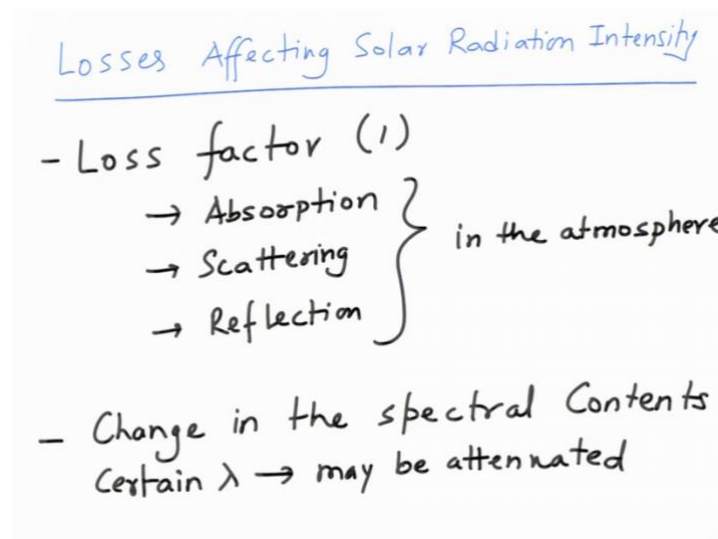 Losses Affecting Solar Radiation Intensity
- Loss factor (1)
→ Absorption
→ Scattering
→ Reflection
} in the atmosphere
- Change in the spectral Contents
Certain λ → may be attennated